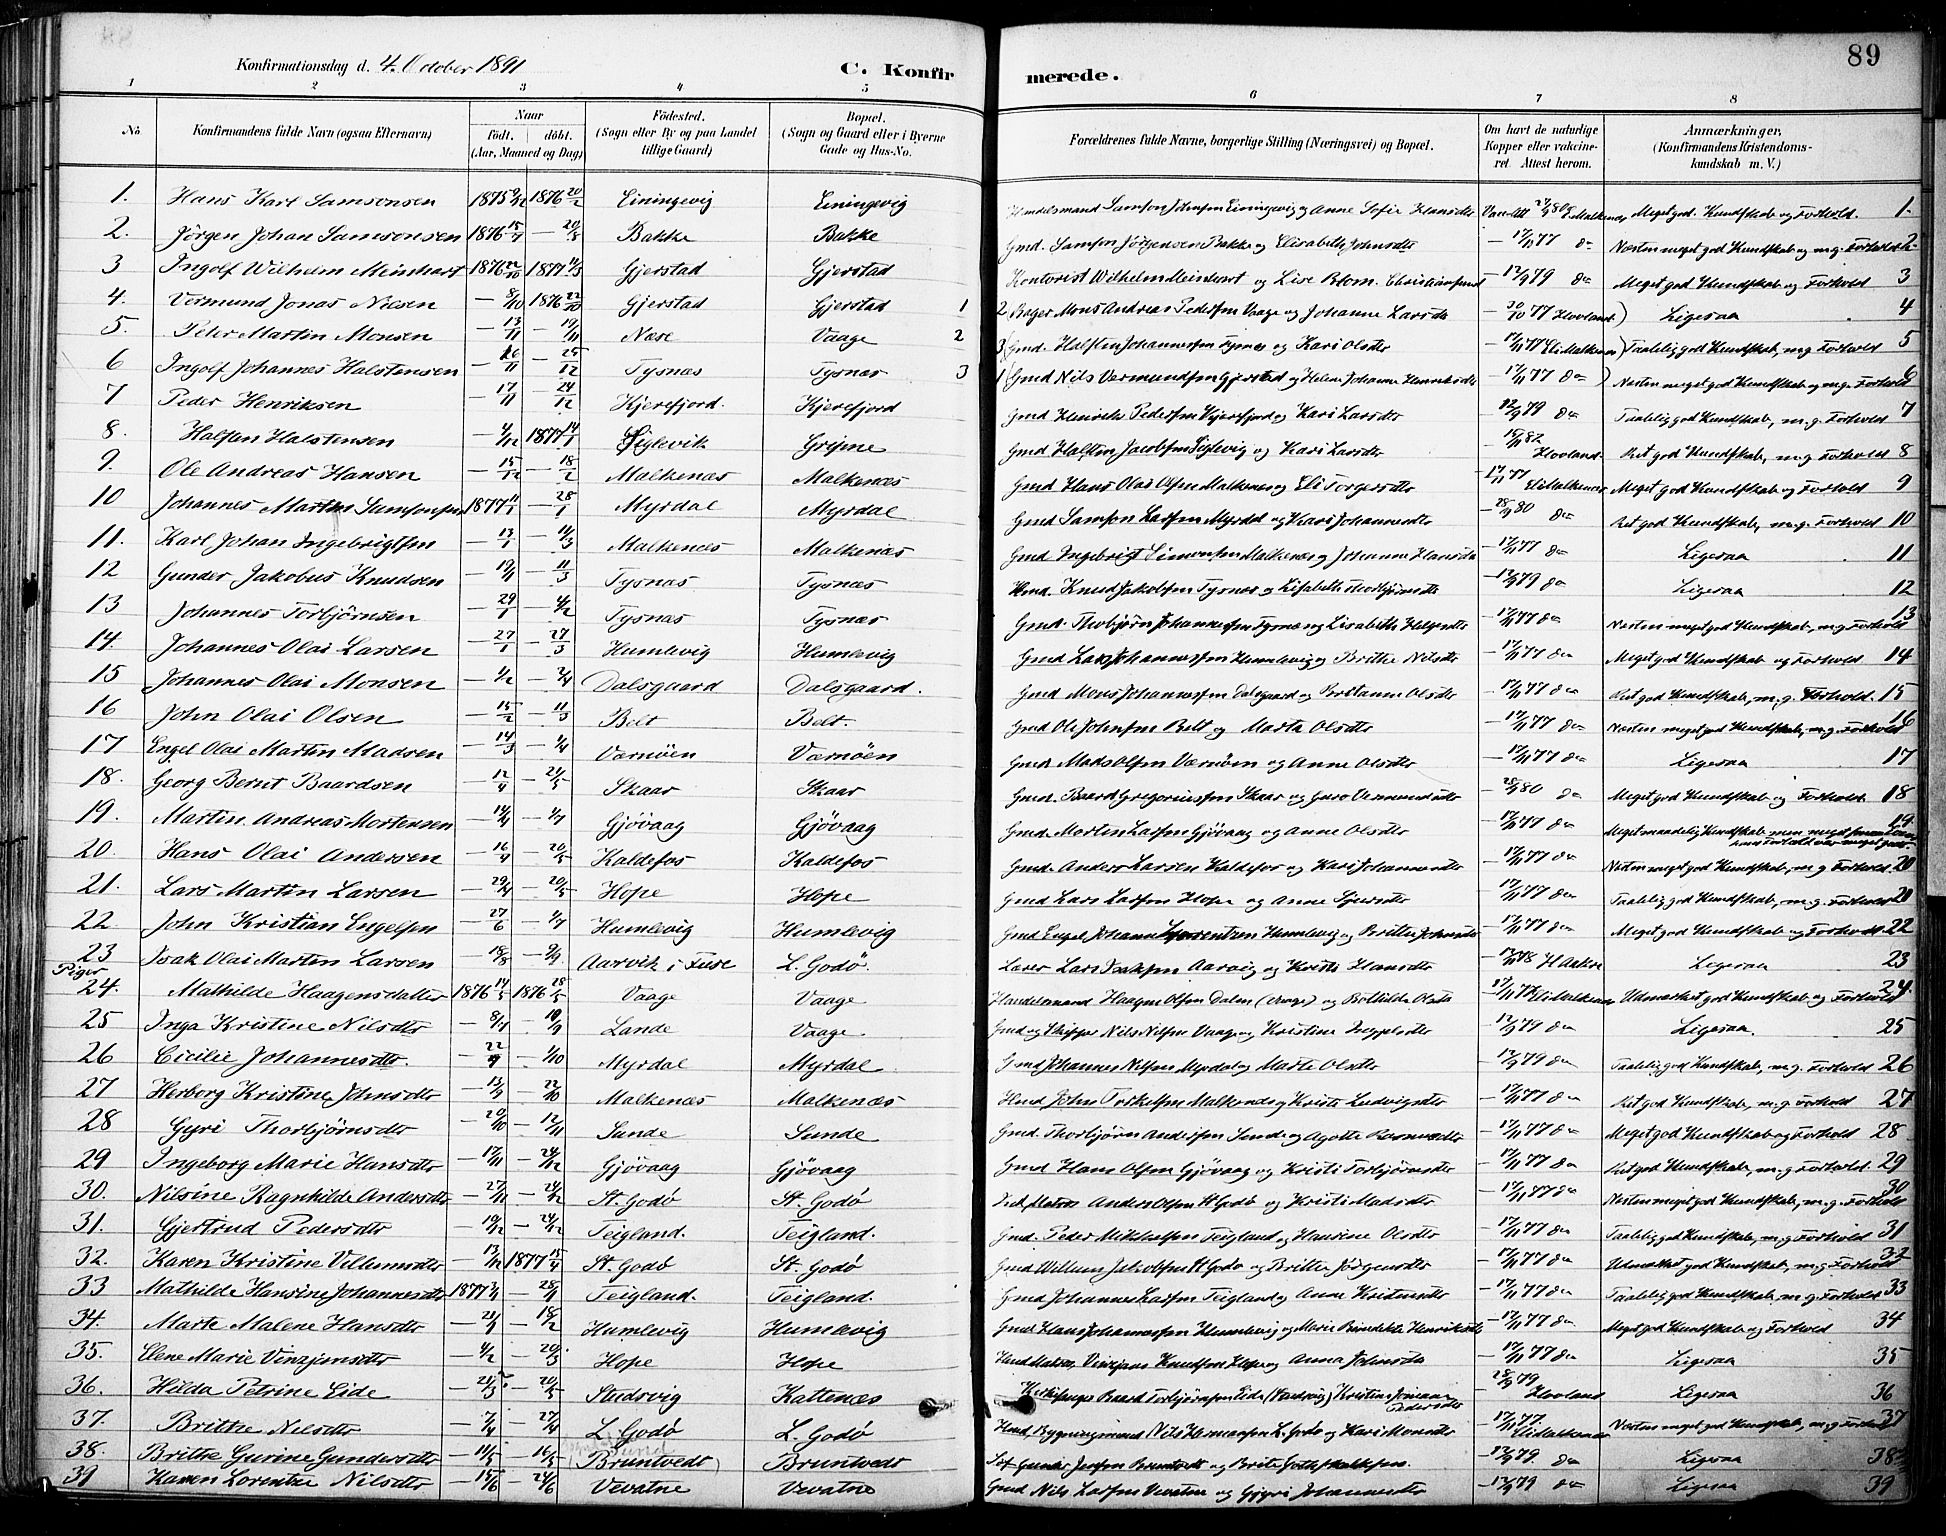 89
Konfirmationsdag d. 4. October 1891
C. Konfirmerede.
1 2 3 4 5 6 7 8
No. | Konfirmandens fulde Navn (ogsaa Efternavn) | Naar født. døbt. (Aar, Maaned og Dag) | Fødested. (Sogn eller By og paa Landet tillige Gaard) | Bopæl. (Sogn og Gaard eller i Byerne Gade og Hus-No. | Forældrenes fulde Navne, borgerlige Stilling (Næringsvei) og Bopæl. | Om havt de naturlige Kopper eller vakcineret. Attest herom. | Anmærkninger. (Konfirmandens Kristendomskundskab m. V.)
1. Hans Karl Samsonsen 1875 9/12 1876 20/2 Einingevig Einingevig Meget god Kundskab og Forhold. 1.
2. Jörgen Johan Samsonsen 1876 Bakke Bakke Gmd. Samson Jörgensen Bakke og Elisabeth Johnsdtr 17/11 77 do Næsten meget god Kundskab og m.g. Forhold 2
3 Ingolf Wilhelm Meinhart 1876 22/10 1877 11/3 Gjerstad Gjerstad Kontorist Wilhelm Meinhart og Lise Blom. Christiansund 79 do Meget god Kundskab og Forhold 3
4. Vermund Jonas Nilsen — 8/10 1876 22/10 Gjerstad Gjerstad 1 2 Bager Mons Andreas Pedersen Vaage og Johanne Larsdtr 20/10 77 Hovland Ligesaa 4
5. Peter Martin Monsen — 13/11 — 19/11 Næse Vaage 2 3 Gmd. Halsten Johannessen Tysnæs og Kari Olsdtr Taalelig god Kundskab, m.g. Forhold 5
6 Ingolf Johannes Halstensen — 16/11 — 25/12 Tysnæs Tysnæs 3 1 Gmd Nils Vermundsen Gjerstad og Helene Johanne Henriksdtr 17/11 77 do Næsten meget god Kundskab og m.g. Forhold 6
7 Peder Henriksen — 17/11 — 24/12 Kjerefjord. Kjerefjord Gmd Henrik Pedersen Kjerefjord og Kari Larsdtr 79 do Taalelig god Kundskab, m.g. Forhold 7
8. Halsten Halstensen — 4/12 1877 14/1 Siglevik Gripne Gmd Halsten Jacobsen Siglevig og Kari Larsdtr 82 Hovland Ret god Kundskab, m.g. Forhold 8
9. Ole Andreas Hansen — 15/12 — 18/2 Malkenæs Malkenæs Gmd Hans Olai Olsen Malkenæs og Eli Torgersdtr 17/11 77 Meget god Kundskab og Forhold 9
10 Johannes Martin Samsonsen 1877 11/1 — 28/1 Myrdal Myrdal Gmd Samson Larsen Myrdal og Kari Johannesdtr 80 do Ret god Kundskab, m.g. Forhold 10
11. Karl Johan Ingebrigtsen — 13/1 — 11/3 Malkenæs Malkenæs Gmd Ingebrigt Simonsen Malkenæs og Johanne Hansdtr 17/11 77 do Ligesaa 11
12 Gunder Jakobus Knudsen — — 11/3 Tysnæs Tysnæs Hmd. Knud Jakobsen Tysnæs og Elisabeth Thorbjørnsdtr 79 do Ligesaa 12
13 Johannes Torbjörnsen — 29/1 — 4/2 Tysnæs Tysnæs Gmd. Thorbjörn Johannessen Tysnæs og Lisabeth Helgesdtr 17/11 77 do Næsten meget god Kundskab, m.g. Forhold 13
14. Johannes Olai Larsen — 27/1 — 27/3 Humlevig Humlevig Gmd Lars Johannessen Humlevig og Brithe Nilsdtr 17/11 77 do Meget god Kundskab og Forhold 14
15 Johannes Olai Monsen — 1/2 — 2/4 Dalsgaard Dalsgaard. Gmd Mons Johannessen Dalsgaard og Britanne Olsdtr 17/11 77 do Ret god Kundskab, m.g. Forhold. 15
16 John Olai Olsen — 15/2 — 11/3 Belt Belt. Gmd Ole Johnsen Belt og Marta Olsdtr 17/11 77 do Næsten meget god Kundskab, m.g. Forhold 16
17 Engel Olai Martin Madsen — 14/3 — 2/4 Værnöen Værnöen Gmd Mads Olsen Værnöen og Anne Olsdtr 17/11 77 do Ligesaa 17
18. Georg Bernt Baardsen — 12/4 — 21/5 Skaar Skaar Gmd. Baard Gregoriussen Skaar og Guro Vermundsdtr 80 do Meget god Kundskab og Forhold. 18
19. Martin Andreas Mortensen — 14/4 — 1/7 Gjövaag Gjövaag Gmd. Morten Larsen Gjövaag og Anne Olsdtr 17/11 77 do Meget maadelig Kundskab 19
20. Hans Olai Andersen — 16/4 — 20/5 Kaldefos Kaldefos Gmd. Anders Larsen Kaldefos og Kari Johannesdtr 17/11 77 do Næsten meget god Kundskab, m.g. Forhold 20
21. Lars Martin Larsen — 29/4 — 20/5 Hope Hope Gmd Lars Larsen Hope og Anne Sjursdtr 17/11 77 do Taalelig god Kundskab, m.g. Forhold 20
22 John Kristian Engelsen — 27/6 — 1/7 Humlevig Humlevig Gmd Engel Johan Lorentzen Humlevig og Brithe Johnsdtr 17/11 77 do Meget god Kundskab og Forhold 22
23 Isak Olai Martin Larsen — 18/8 — 2/9 Aarvik i Fuse L. Godö. Lærer Lars Isaksen Aarvig og Kristi Hansdtr Ligesaa 23
Piger
24. Mathilde Haagensdatter 1876 14/5 1876 28/5 Vaage Vaage Handelsmand Haagen Olsen Dalen (Vaage) og Bothilde Olsdtr Udmærket god Kundskab og Forhold 24.
25 Inga Kristine Nilsdtr — 8/7 — 10/9 Lande Vaage Gmd og Skipper Nils Nilsen Vaage og Kristine 79 do Ligesaa. 25
26 Cicilie Johannesdtr. — 22/9 — 1/10 Myrdal Myrdal Gmd Johannes Nilsen Myrdal og Marte Olsdtr 79 do Taalelig god Kundskab, m.g. Forhold 26
27 Herborg Kristine Johnsdtr — 13/9 — 22/10 Malkenæs Malkenæs Hmd John Torkelsen Malkenæs og Kristi Ludvigsdtr 17/11 77 do Ret god Kundskab, m.g. Forhold 27
28 Gyri Thorbjörnsdtr — 20/10 — 12/11 Sunde Sunde Gmd. Thorbjörn Andersen Sunde og Agotte 17/11 77 do Meget god Kundskab og Forhold 28
29 Ingeborg Marie Hansdtr — 17/11 — 24/12 Gjövaag Gjövaag Gmd Hans Olsen Gjövaag og Kristi Torbjörnsdtr 17/11 77 do Ret god Kundskab, m.g. Forhold. 29
30. Nilsine Ragnhilde Andersdtr — 27/11 — 24/12 St. Godø St. Godø Anders Olsen St Godø og Kristi Madsdtr 17/11 87 do Næsten meget god Kundskab, m.g. Forhold 30
31. Gjertrud Pedersdtr — 19/12 — 24/12 Teigland. Teigland. Gmd. Peder Mikkelsen Teigland og Hansine Olsdtr 17/11 77 do Taalelig god Kundskab, m.g. Forhold 31
32. Karen Kristine Villumsdtr — 13/12 1877 15/4 St. Godø St. Godø Gmd Willum Jakobsen St Godø og Brithe Jörgensdtr 17/11 77 do Udmærket god Kundskab, m.g. Forhold 32
33 Mathilde Hansine Johannesdtr 1877 — 28/1 Teigland. Teigland. Gmd Johannes Larsen Teigland og Anne Kristensdtr 17/11 77 do Taalelig god Kundskab, m.g. Forhold 33
34. Marte Malene Hansdtr — 21/1 — 18/2 Humlevig Humlevig Gmd Hans Johannessen Humlevig og Marie Benedikte Henriksdtr 17/11 77 do Meget god Kundskab og Forhold 34
35. Elene Marie Vinzjensdtr — 4/2 — 20/3 Hope Hope Vinzjens Knudsen Hope og Anna Johnsdtr 17/11 77 do Ligesaa 35
36. Hilda Petrine Eide — 21/3 — 20/5 Sundsvig Kattenæs Kirkesanger Baard Torbjörnsen Eide Kristine Johanne Pedersdtr 79 Hovland Ligesaa 36
37. Brithe Nilsdtr — 7/4 — 27/4 L. Godø L. Godø Nils Hermansen L. Godø og Kari Monsdtr 17/11 77. Næsten meget god Kundskab, m.g. Forhold 37
38. Brithe Gurine Gundersdtr — 10/5 — 16/5 (Bruntvedt) Bruntvedt Gunder Bruntvedt og Brithe 79. do Ligesaa 38
39 Karen Lorentze Nilsdtr — 15/6 — 24/6 Vevatne Vevatne Gmd Nils Larsen Vevatne og Gjyri Johannesdtr 79 do Ligesaa 39